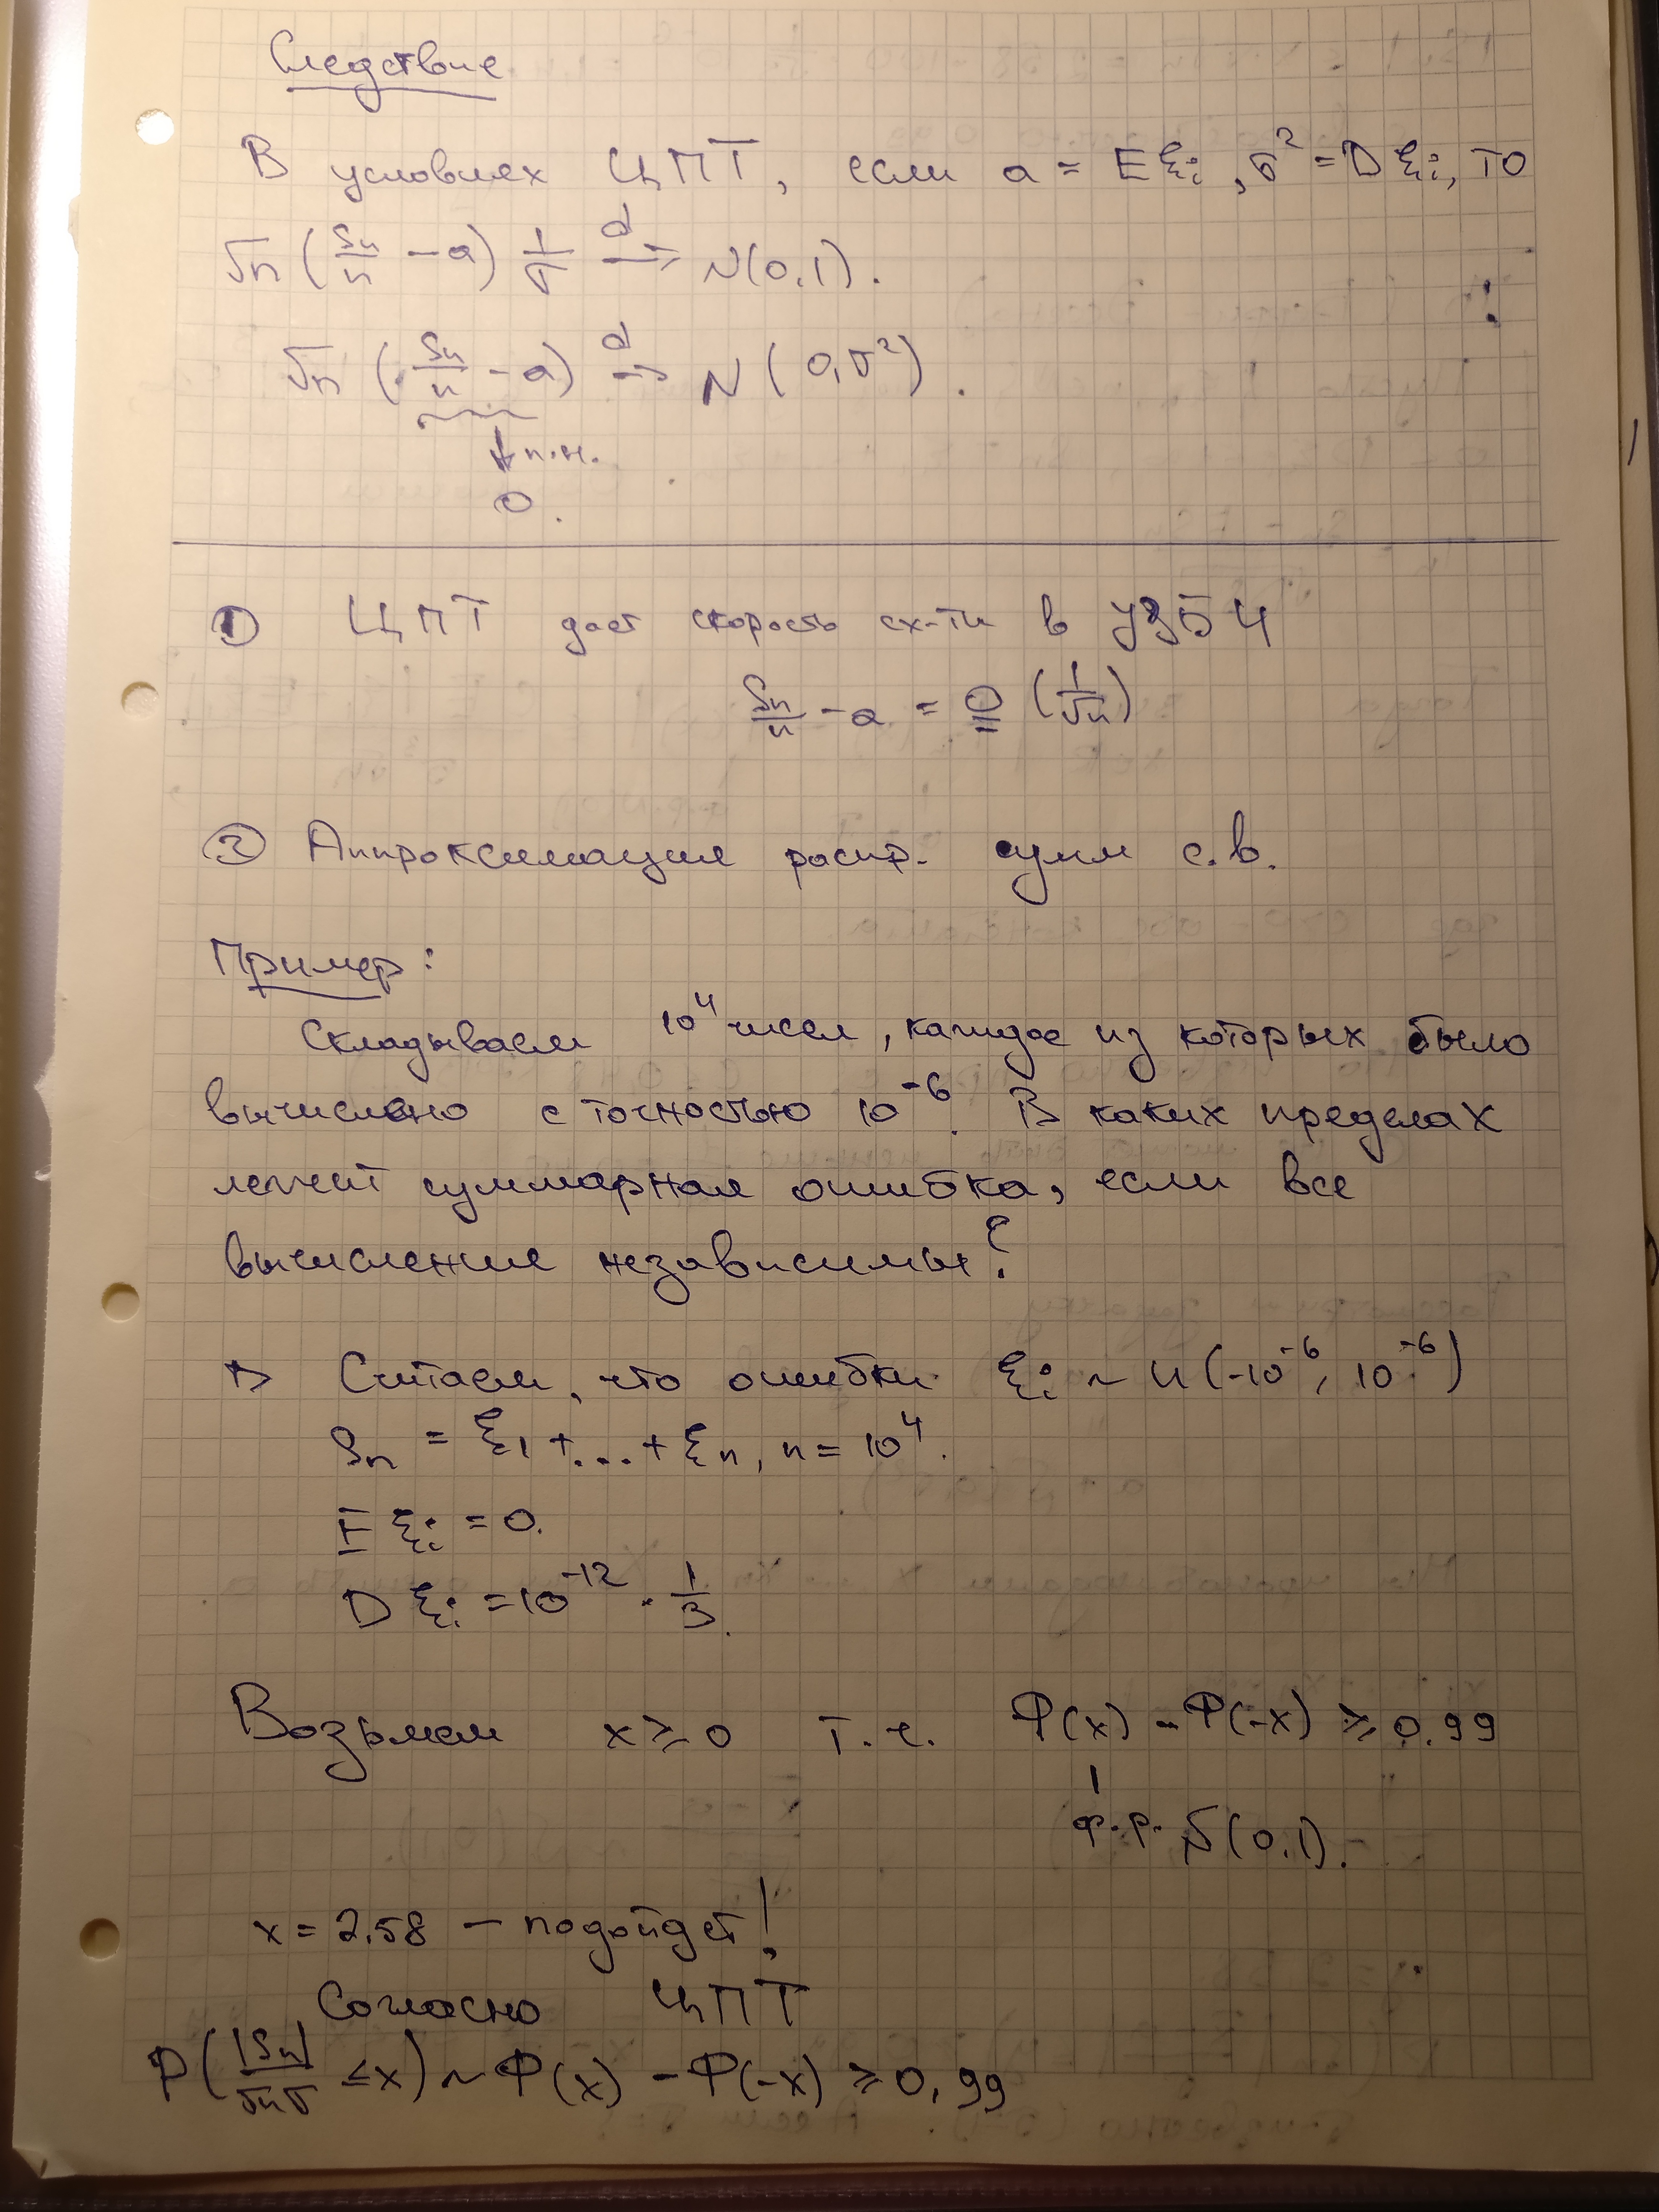 Следствие
В условиях ЦПТ, если a = Eξᵢ, σ² = Dξᵢ, то
√n (Sₙ/n − a) 1/σ →ᵈ N(0,1).
√n (Sₙ/n − a) →ᵈ N(0,σ²).
↓ п.н.
0.
① ЦПТ дает скорость сх-ти в УЗБЧ
Sₙ/n − a = O (1/√n)
② Аппроксимация распр. сумм с.в.
Пример:
Складываем 10⁴ чисел, каждое из которых было
вычислено с точностью 10⁻⁶. В каких пределах
лежит суммарная ошибка, если все
вычисления независимы?
▷ Считаем, что ошибки ξᵢ ~ U(-10⁻⁶, 10⁻⁶)
Sₙ = ξ₁ + ... + ξₙ, n = 10⁴.
Eξᵢ = 0.
Dξᵢ = 10⁻¹² · 1/3.
Возьмем x ≥ 0 т.ч. Φ(x) − Φ(−x) ≥ 0.99
ф.р. N(0,1).
x = 2.58 — подойдет!
Согласно ЦПТ
P(|Sₙ|/√nσ ≤ x) ~ Φ(x) − Φ(−x) ≥ 0,99